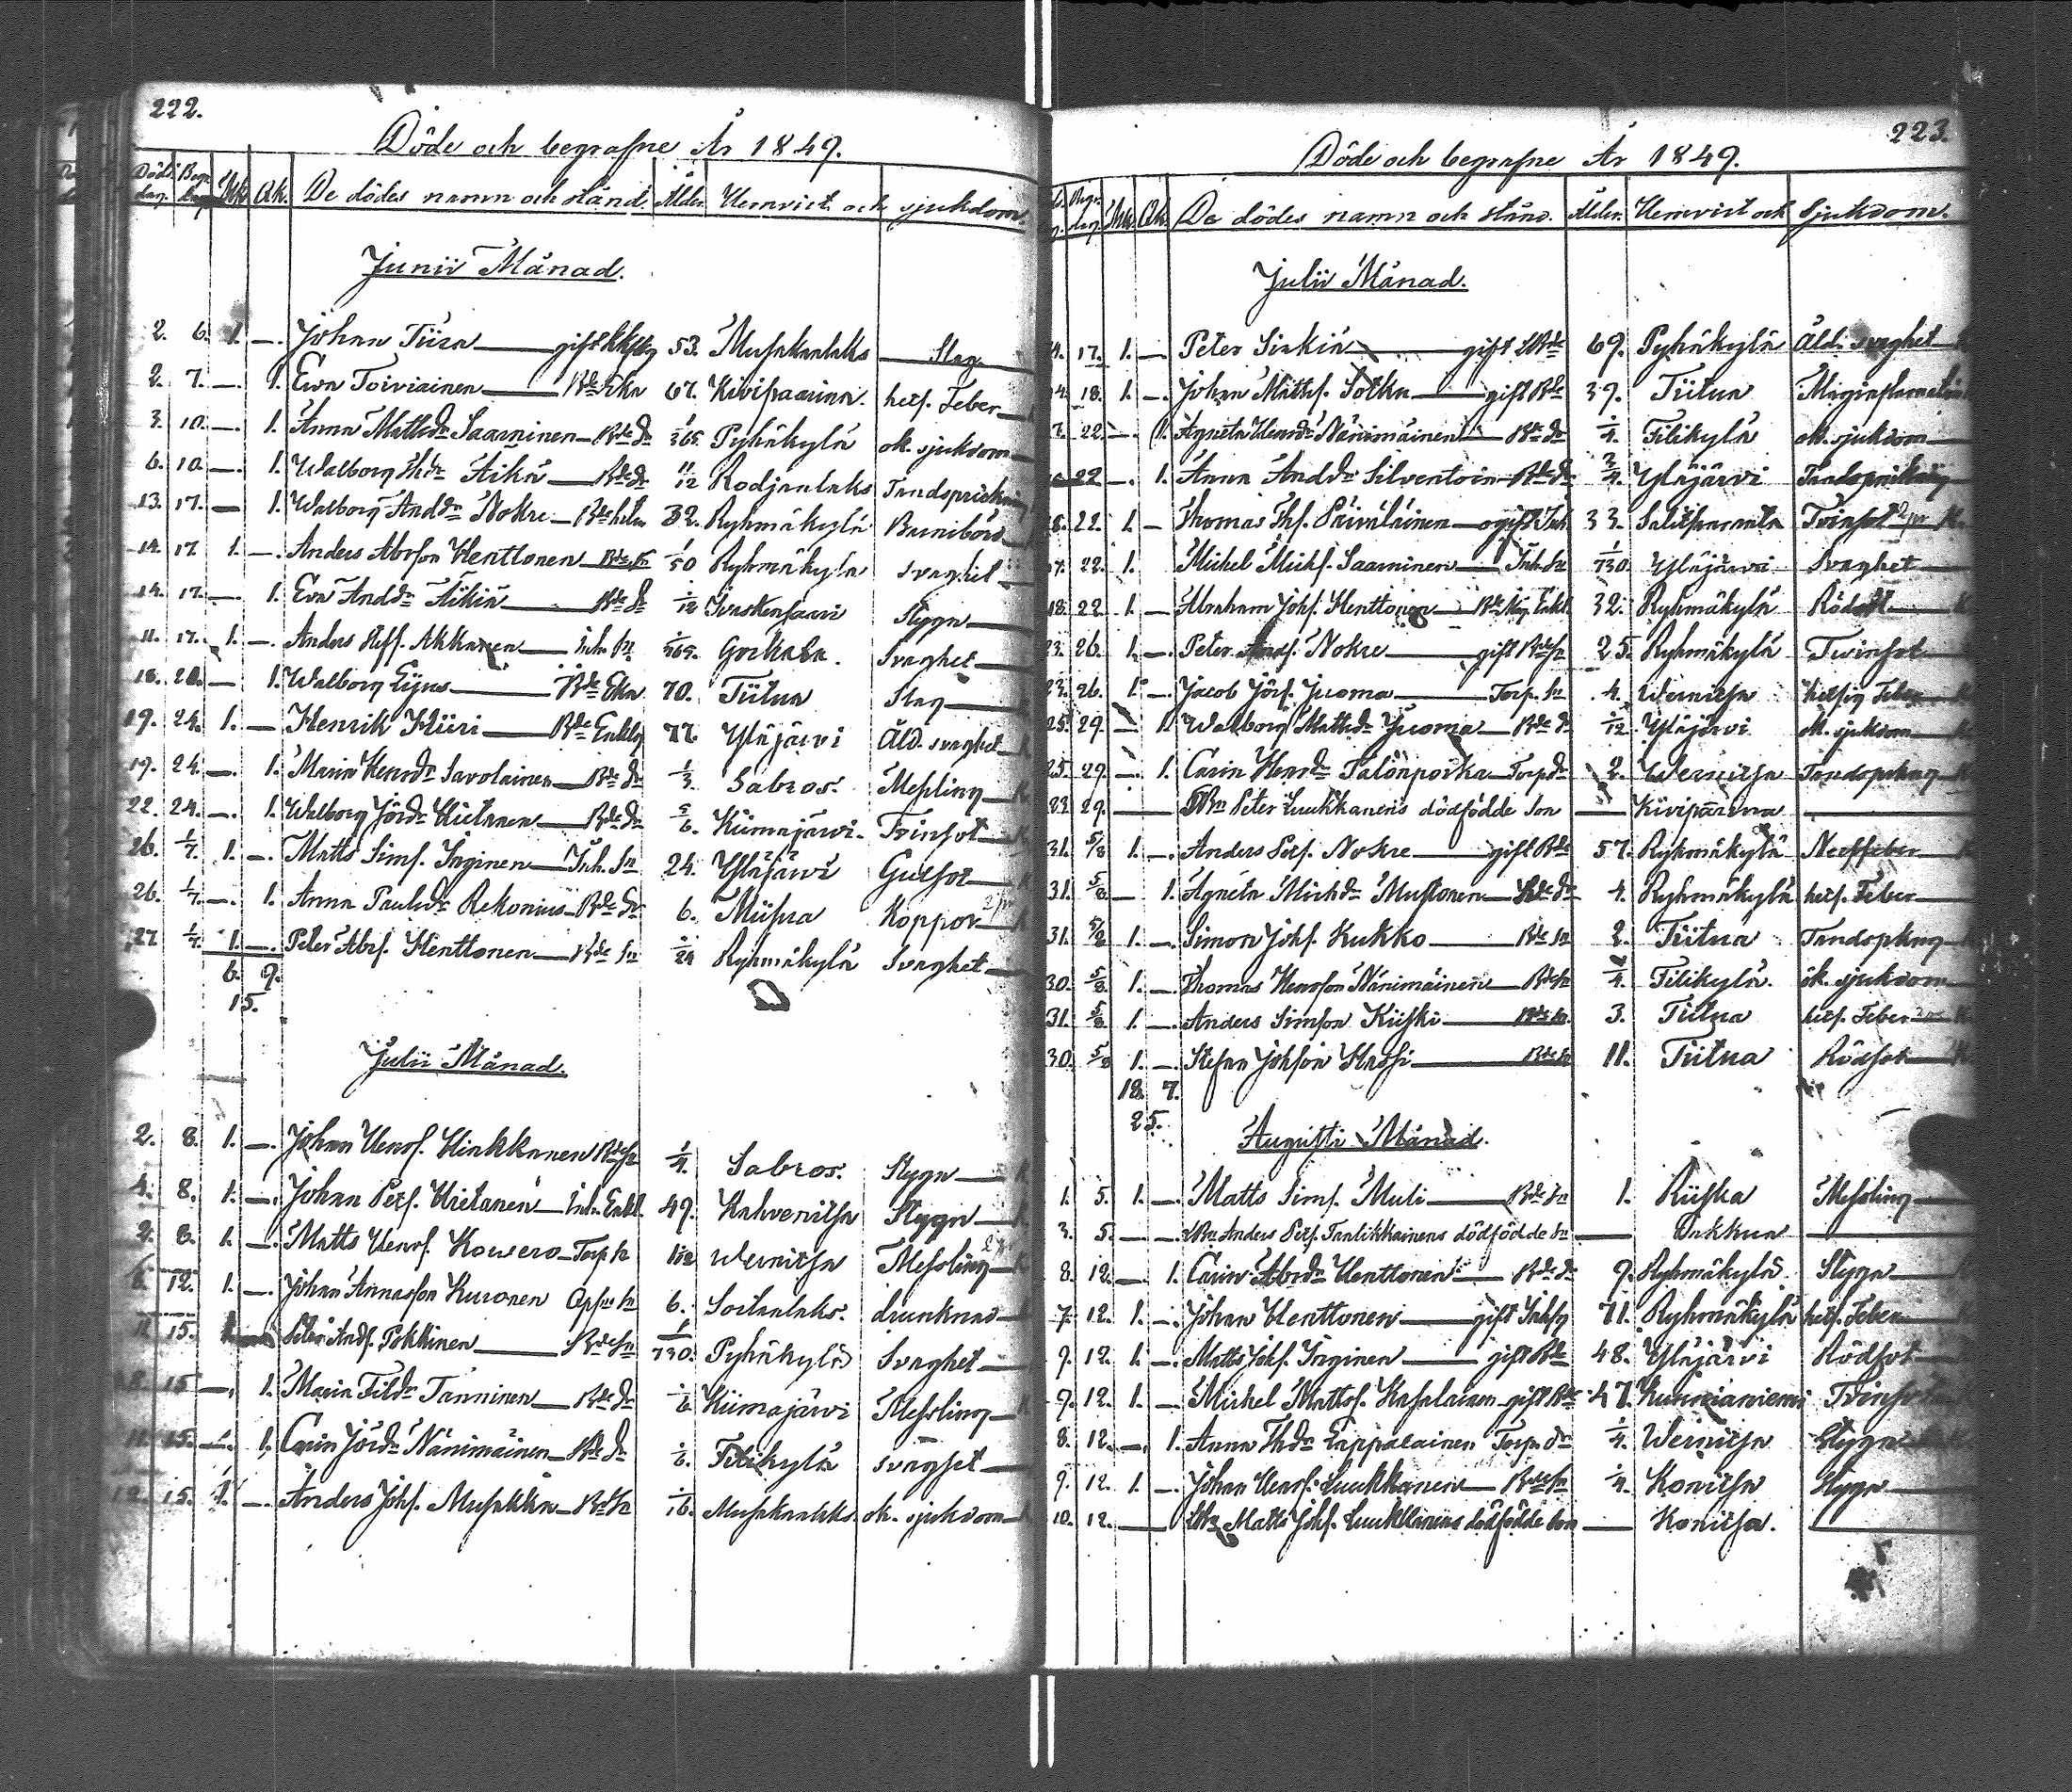 222.
Döde och begrafne År 1849.
Döds dag. Begr. dag Mk. Qk. De dödes namn och stånd. Ålder Hemvist och sjukdom.
Junii Månad.
2. 6. 1. — Johan Tiira — gift 53. Musakanlaks — Slag
2. 7. — 1. Ewa Toiviainen — Bde Eka 67. Kivipaarina. hets. Feber
3. 10. — 1. Anna Mattsdr Saarninen — Bde dr 1/365 Pyhäkylä ok. sjukdom
6. 10. — 1. Walborg Thdr Äikä — Bde dr 11/12 Rodjanlaks Tandsprickning
13. 17. — 1. Walborg Anddr Nokre — Bde 32. Ryhmäkylä Barnsbörd
14. 17. 1. — Anders Abrson Henttonen Bde sn 1/50 Ryhmäkylä svaghet
14. 17. — 1. Eva Anddr Äikiä — Bde dr 1/12 Stygn
11. 17. 1. — Anders Steff. Akkanen — Inh. sn 1/365. Gorkala. Svaghet
18. 20. — 1. Walborg Eijus — Bde Eka 70. Tiitua Slag
19. 24. 1. — Henrik Hiiri — Bde Enklg 77 Yläjärvi Åld. svaghet
19. 24. — 1. Maria Henrdr Savolainen — Bde dr 1/3 Sabros. Messling
22. 24. — 1. Walborg Jördr Hietanen — Bde dr 5/6. Kiimajärvi. Tvinsot
26. 1/7. 1. — Matts Sims. Inginen — Inh. sn 24. Yläjärvi Gulsot
26. 1/7. — 1. Anna Paulsdr Rekonius — Bde dr 6. Miisua Koppor
27 1/7. 1. — Peter Abrs. Henttonen — Bde sn 1/24 Ryhmäkylä Svaghet
6. 9.
15.
Julii Månad.
2. 8. 1. — Johan Henrs. Hinkkanen Bde sn 1/4. Sabros. Stygn
4. 8. 1. — Johan Pers. Hietanen Inh. Enkl. 49. Kahvenitsa Stygn
2. 8. 1. — Matts Henrs. Kowero — Torp. sn Wernitsa Messling
12. 1. — Johan Annasson Kuronen sn 6. Sortanlaks. drunknad
11 15. Peter Ands. Pokkinen — Bde sn 1/130. Pyhäkylä Svaghet
15 — 1. Maria Fildr Tanninen — Bde dr 1/6 Kiimajärvi Messling
15. — 1. Carin Jördr Nänimäinen — Bde dr 1/6. Filikylä svaghet
12. 15. 1. — Anders Johs. Musakka — Bde sn 1/16. Musakanlaks ok. sjukdom
223.
Döde och begrafne År 1849.
Begr. dag. Mk. Qk. De dödes namn och stånd. Ålder. Hemvist och sjukdom.
Julii Månad.
17. 1. — Peter Sinkiä — gift Bde 69. Pyhäkylä Åld. svaghet
18. 1. — Johan Matts. Sotka — gift Bde 39. Tiitua
22 — 1. Agneta Henrdr Nänimäinen — Bde dr 1/4. Filikylä ok. sjukdom
22 — 1. Anna Anddr Silventoin — Bde dr 3/4. Yläjärvi Tandsprickning
22. 1. — Thomas Ths. Päiväläinen — ogift Inh 33. Salitsanranta Tvinsot
22. 1. Michel Michs. Saarninen — Inh. sn 1/130 Yläjärvi Svaghet
18. 22 1. — Abraham Johs. Henttonen — 32. Ryhmäkylä Rödsot
23. 26. 1. — Peter Ands. Nokre — gift Bde sn 25. Ryhmäkylä Tvinsot
23. 26. 1. — Jacob Jörs. Juoma — Torp. sn 4. Wernitsa hetsig Feber
25. 29. — 1. Walborg Mattsdr Juoma — Bde dr 1/12. Yläjärvi ok. sjukdom
25. 29. — 1. Carin Henrdr Talonpoika — Torp dr 2. Wernitsa Tandsprkng
23 29. — Bdn Peter Luukkanens dödfödde son — Kivipaarina
31. 5/8 1. — Anders Pers. Nokre — gift Bde 57. Ryhmäkylä Nerffeber
31. 5/8 — 1. Agneta Michdr Mustonen — Bde dr 4. Ryhmäkylä hets. Feber
31. 5/8 1. — Simon Johs. Kukko — Bde sn 2. Tiitua Tandsprkng
30. 5/8 1. — Thomas Henrsson Nänimäinen — Bde sn 1/4. Filikylä. ok. sjukdom
31. 5/8 1. — Anders Simson Kiiski — Bde sn. 3. Tiitua hets. Feber
30. 5/8 1. — Stefan Johson Hassi — Bde sn 11. Tiitua Rödsot
18. 7.
25.
Augusti Månad.
1. 5. 1. — Matts Sims. Muli — Bde sn 1. Riiska Messling
3. 5. — Bdn Anders Pers. Taulikkainens dödfödde sn — Unkkua
8. 12. — 1. Carin Abrdr Henttonen — Bde dr 9. Ryhmäkylä Stygn
7. 12. 1. — Johan Henttonen — gift Inhsg 71. Ryhmäkylä hets. Feber
9. 12. 1. — Matts Johs. Inginen — gift Bde 48. Yläjärvi Rödsot
9. 12. 1. — Michel Mattss. Kasalainen gift Bde 47. Kunnianiemi Tvinsot
8. 12. — 1. Anna Thdr Lappalainen Torp. dr 1/4. Wernitsa Stygn
9. 12 1. — Johan Henrs. Luukkanen — Bde sn 1/4. Konitsa Stygn
10. 12. — Bdn Matts Johs. Luukkanens dödfödde son — Konitsa.